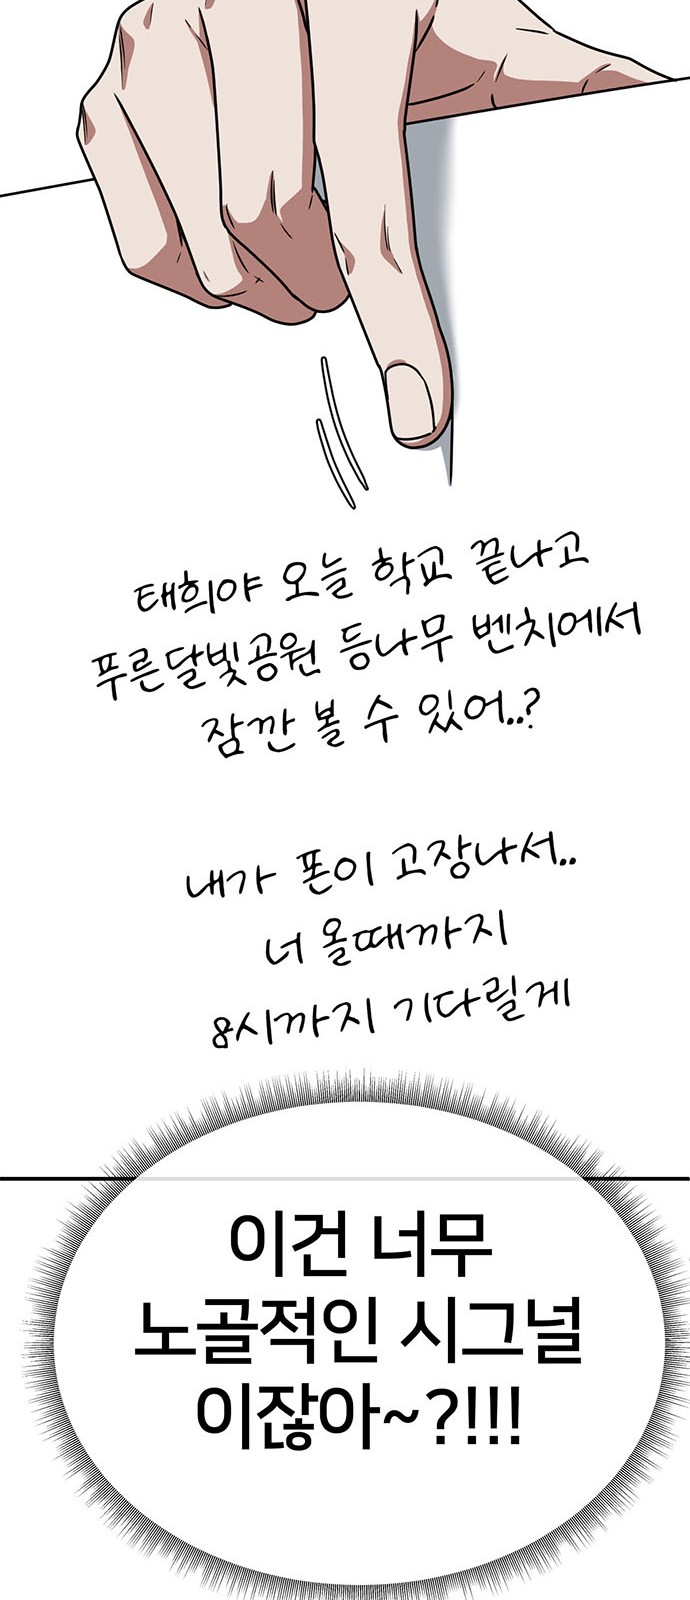 태희야 오늘 학교 끝나고
푸른달빛공원 등나무 벤치에서
잠깐 볼 수 있어..?
내가 폰이 고장나서..
너 올때까지
8시까지 기다릴게
이건 너무
노골적인 시그널
이잖아~?!!!